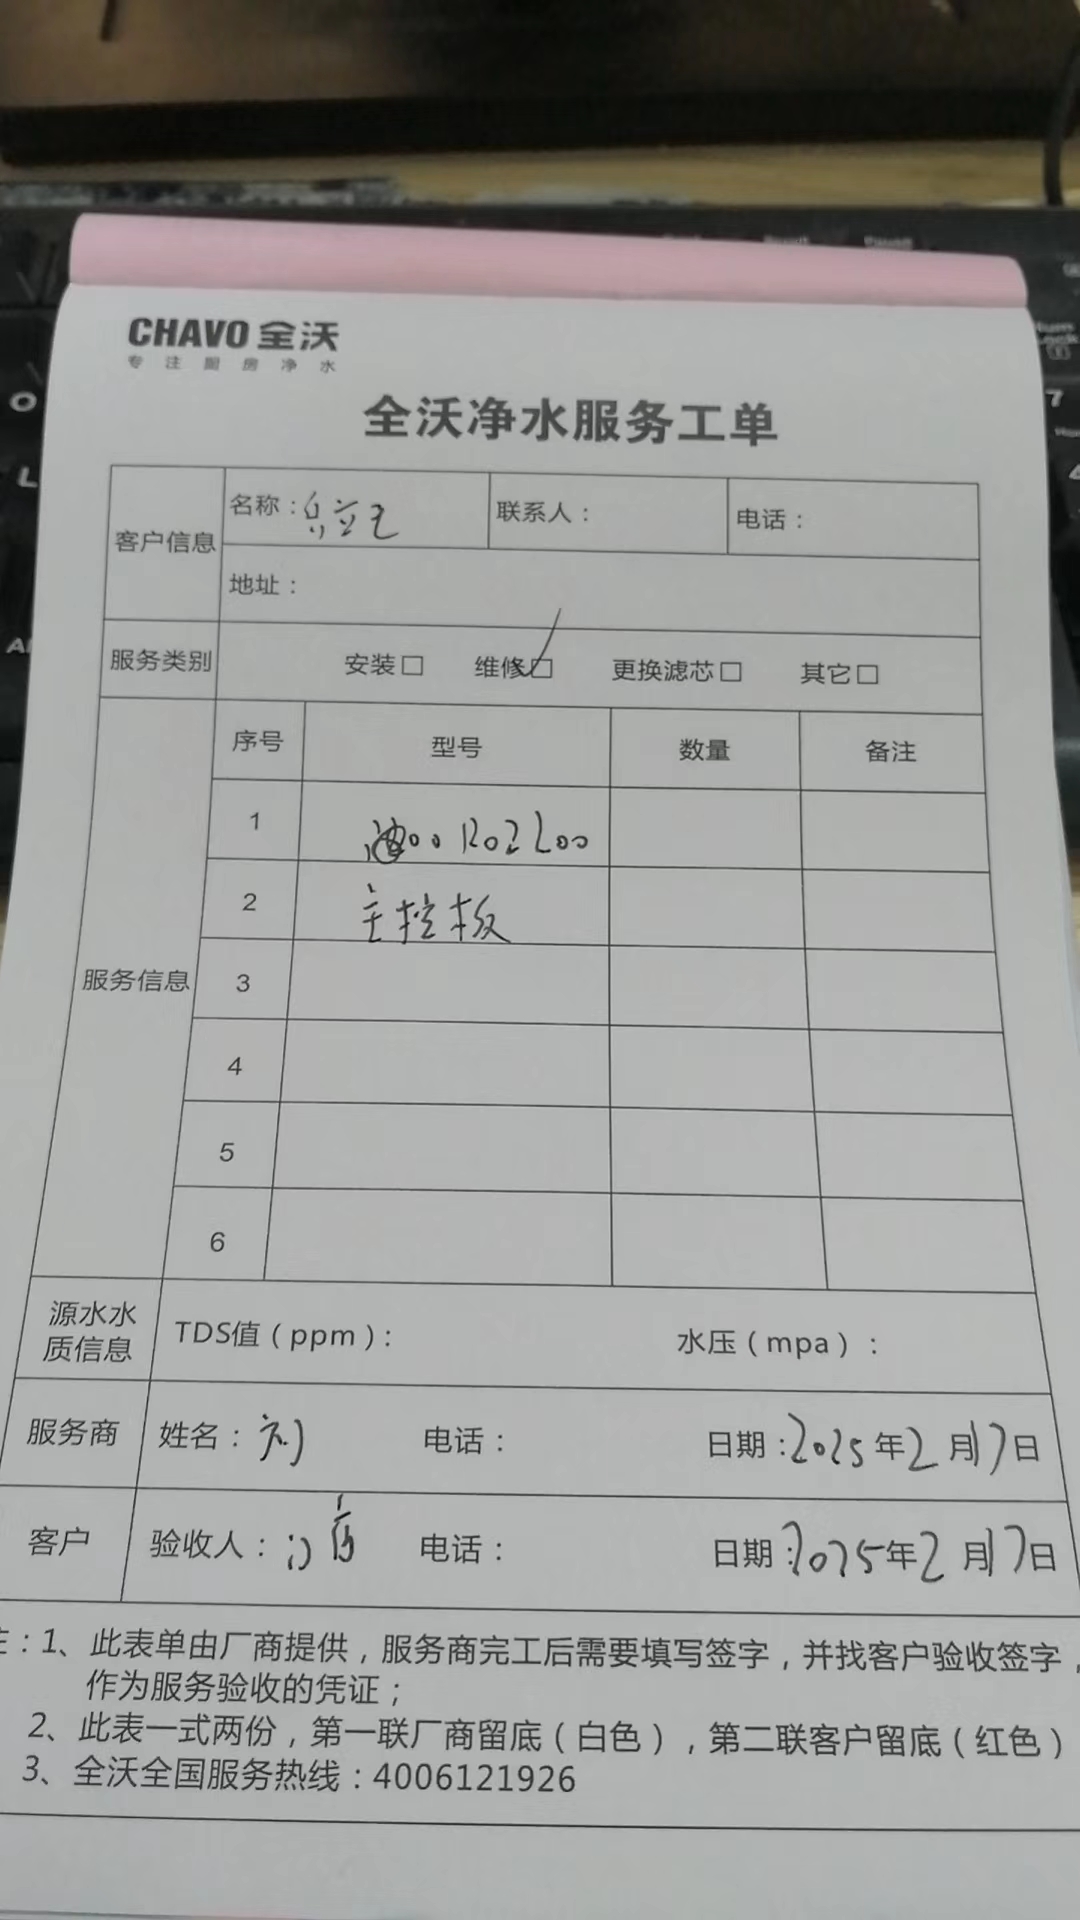 CHAVO 全沃
专注厨房净水
全沃净水服务工单
客户信息 名称： 联系人： 电话：
地址：
服务类别 安装□ 维修☑ 更换滤芯□ 其它□
服务信息 序号 型号 数量 备注
1 00 RO2L00
2 主控板
3
4
5
6
源水水质信息 TDS值（ppm）： 水压（mpa）：
服务商 姓名：刘 电话： 日期：2025年2月17日
客户 验收人： 电话： 日期：2025年2月17日
注：1、此表单由厂商提供，服务商完工后需要填写签字，并找客户验收签字，
作为服务验收的凭证；
2、此表一式两份，第一联厂商留底（白色），第二联客户留底（红色）
3、全沃全国服务热线：4006121926